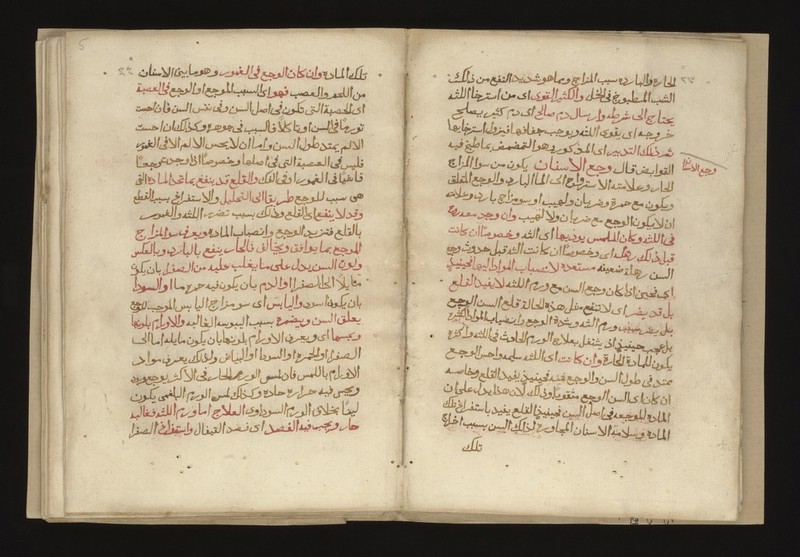 الحارة والباردة سبب المزاج ومما هو شديد النفع من ذلك
الشب المطبوخ فى الخل والكثير القوى اى من استرخا اللثه
يحتاج الى شرطه وارسال دم صالح اى دم كثير يصلح
خروجه اى يقوى اللثه ويوجب جفافها فيزول استرخاؤها
ثم بذلك التدبير اى المذكور وهو التمضمض بما طبخ فيه
القوابض قال وجع الاسنان يكون من سوء المزاج
وجع الاسنان
الحار وعلامته الاسترواح الى الماء البارد والوجع المقلق
ويكون مع حمرة وضربان ولهيب او سو مزاج بارد وعلامته
ان لا يكون الوجع مع ضربان ولا لهيب وان وجد معه ورم
فى اللثه وكان الملمس يوذيها اى اللثه وخصوصا ان كانت
قبل ذلك رهله اى وخصوصا ان كانت اللثه قبل حدوث وجع
السن رهلة ضعيفه مستعدة لانصباب المواد اليها فحينئذ
اى فحين اذ كان وجع السن مع ورم اللثه لا يفيد القلع
بل قد يضر اى لا ينفع مثل هذه الحالة قلع السن الوجع
بل يضر بسبب ورم اللثه وشدة الوجع وانصباب المواد الكثيرة
بل يجب حينئذ ان يشتغل بعلاج الورم الحادث فى اللثه واكثره
يكون للمادة الحارة وان كانت اى اللثه سليمه واحس الوجع
ممتد فى طول السن والوجع فيه فحينئذ يفيد القلع وخاصه
ان كان اى السن الوجع مثقوبا وذلك لان هذا يدل على ان
المادة الموجعه فى اصل السن فحينئذ القلع يفيد باستفراغ تلك
المادة وسلامة الاسنان المجاورة لذلك السن بسبب اخراج
تلك
تلك المادة وان كان الوجع فى الغمور وهو ما بين الاسنان
من اللحم والعصب فهو اى السبب الموجع او الوجع فى العصبة
اى العصبة التى تكون فى اصل السن وفى نفس السن فان احست
تورما فى السن او تاكلا فالسبب فى جوهره وكذلك ان احست
الالم يمتد طول السن واما ان لا يحس الالم الا فى الغور
فليس فى العصبة التى فى اصلها وخصوصا اذا لم يجد
فانها فى الغمور او فى الفك والقلع قد ينفع بما تجد المادة التى
هى سبب للوجع طريقا الى التحليل والاستفراغ بسبب القلع
وقد لا ينفع اى القلع وذلك بسبب تضرر اللثه والغمور
بالقلع فتزيد الوجع وانصباب المادة ويعرف سوء المزاج
الموجع بما يوافق ويخالف فالحار ينفع بالبارد وبالعكس
ولون السن يدل على ما يغلب عليه من الصفرا بان يكون
مايلا الى الصفرا والدم بان يكون فيه حمرة ما او السودا
بان يكون اسود واليابس اى سو مزاج اليابس الموجب للوجع
يعلق السن ويضمره بسبب اليبوسه الغالبه والاورام بلونها
ومجسها اى ويعرف الاورام بلونها بان يكون مايلة اما الى
الصفرا او الحمرة او السودا او البياض وكذلك يعرف مواد
الاورام باللمس فان لمس الورم الحار فى الاكثر يوجع
ويحس فيه حرارة حادة وكذلك لمس الورم البلغمى يكون
لينا بخلاف الورم السوداوى العلاج اما ورم اللثه فغالبه
حار ويجب فيه الفصد اى فصد القيفال واستفراغ الصفرا